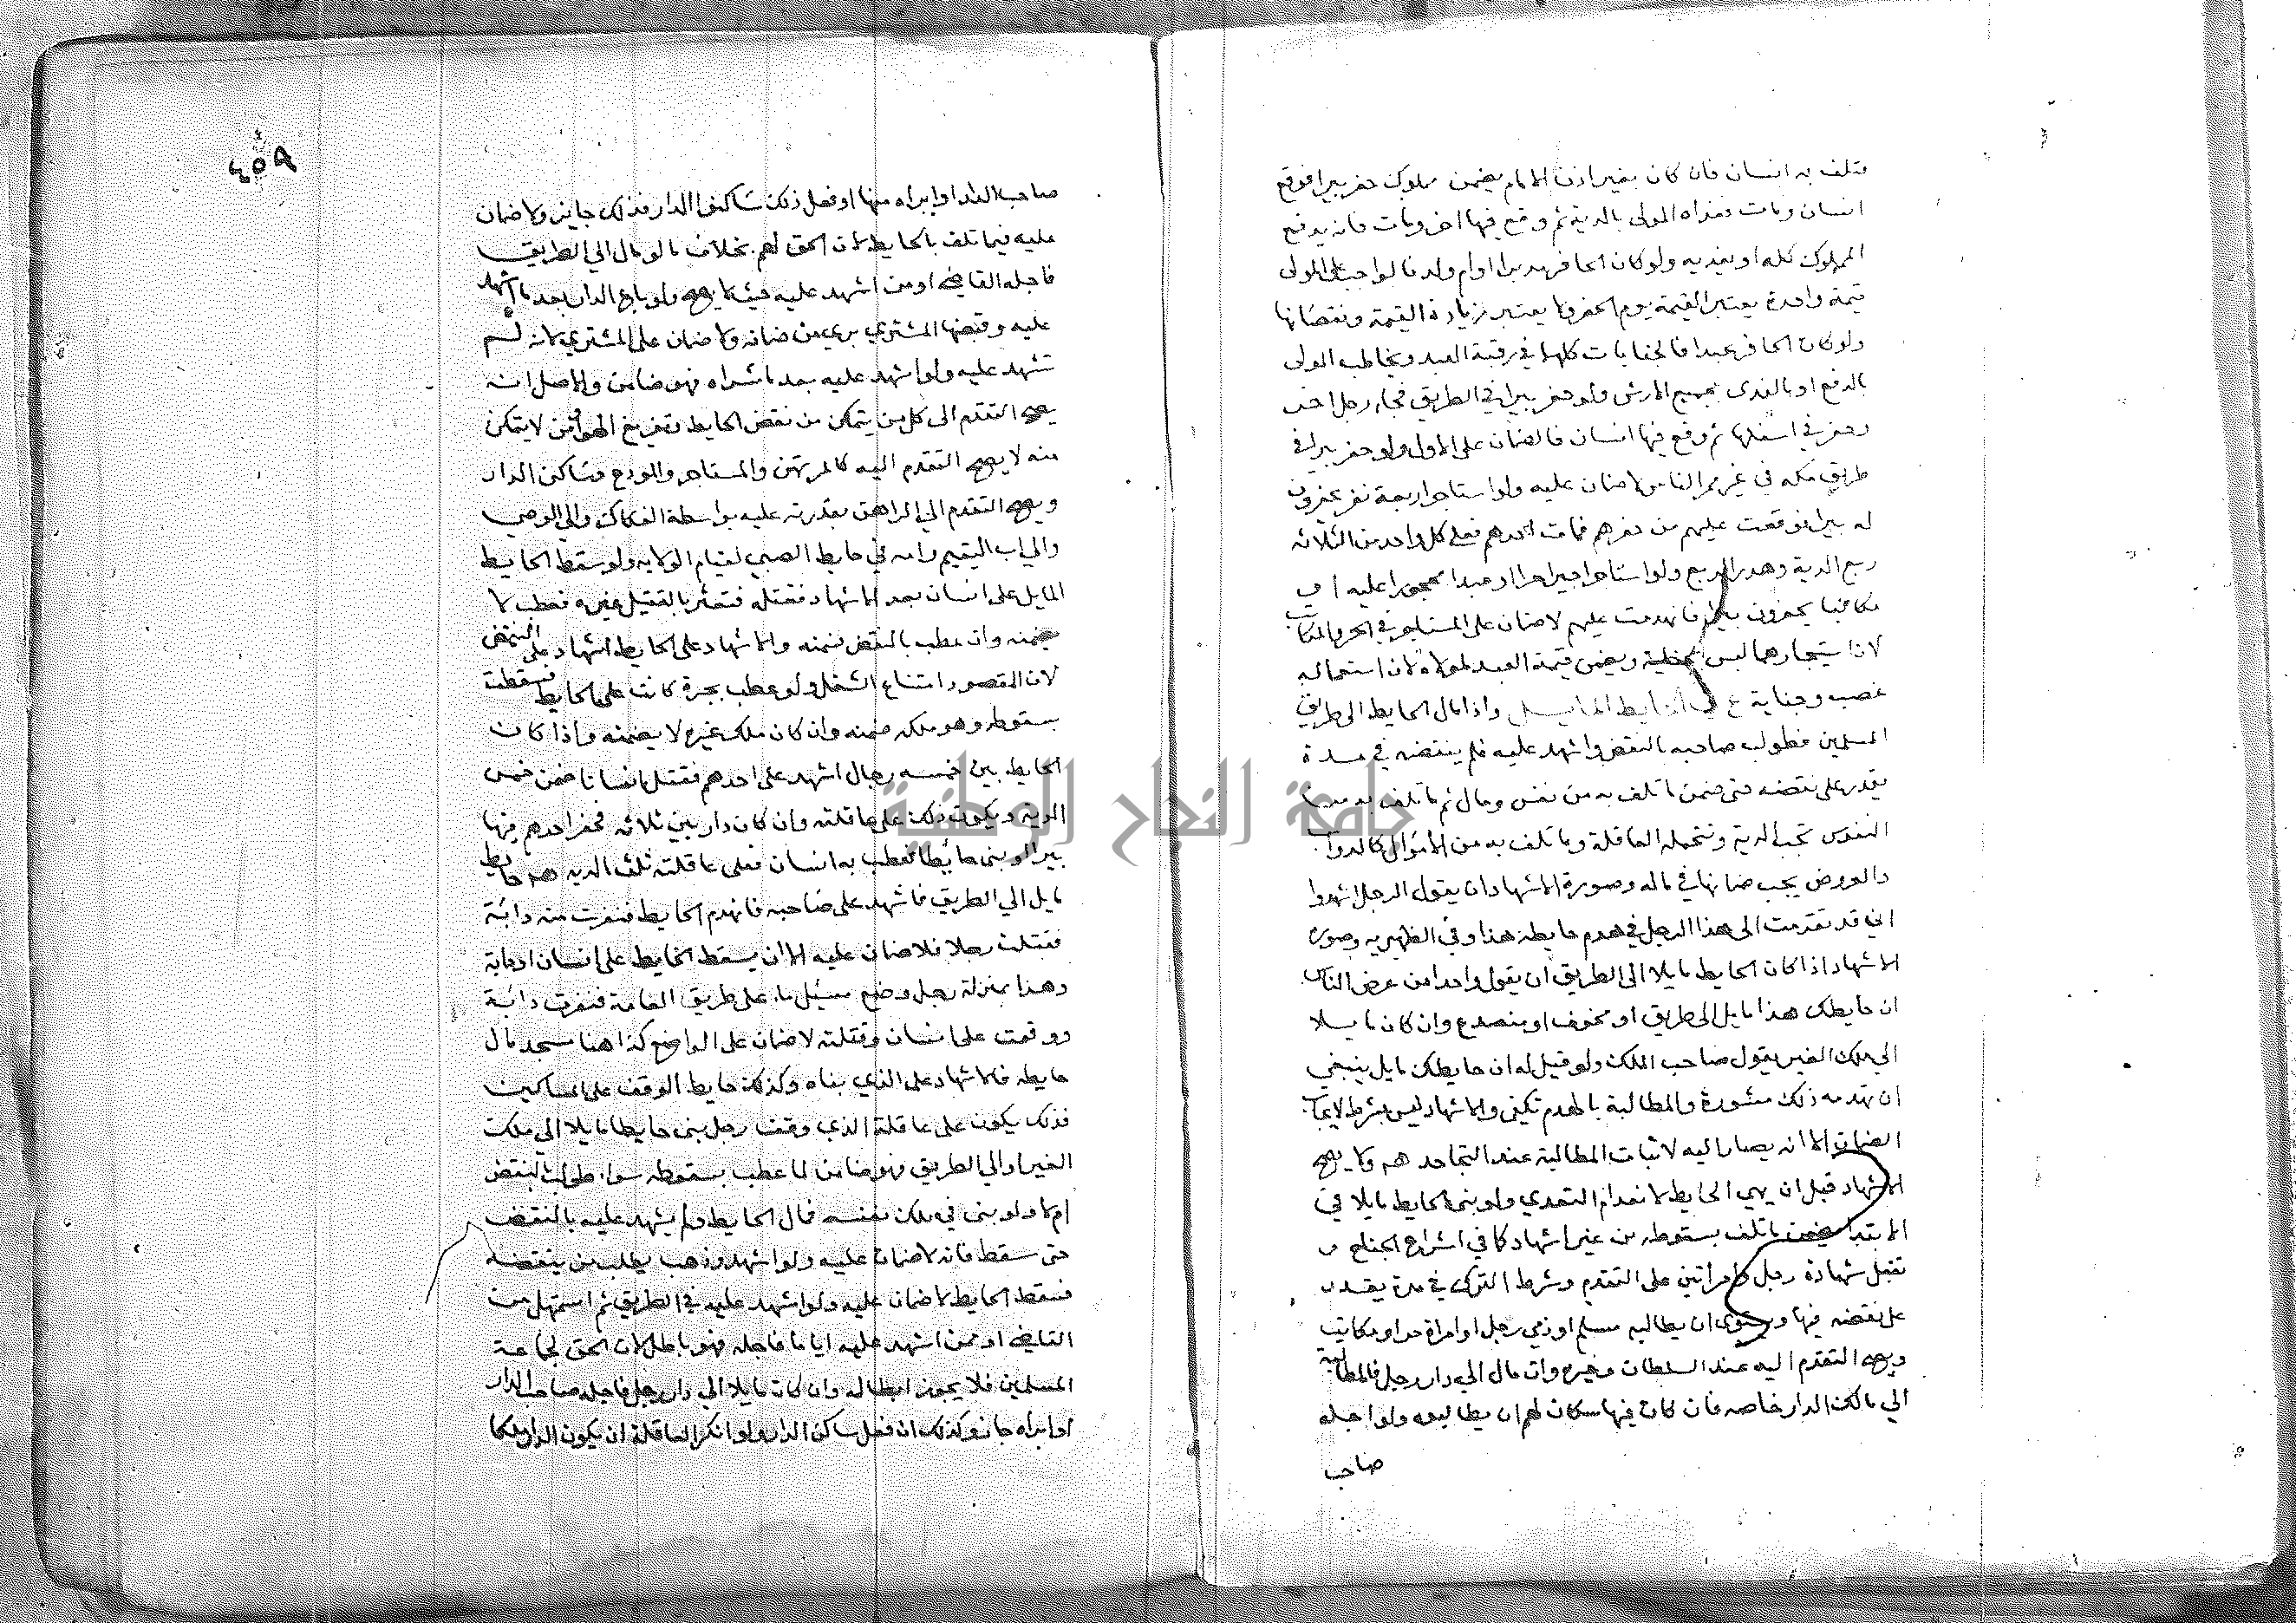 فتلف به انسان فان كان بغير اذن الامام يضمن مملوك حفر بيرا فوقع
انسان ومات ففداه المولى بالدية ثم وقع فيها اخر ومات فانه يدفع
المملوك كله او يفديه ولو كان الحافر مدبرا او ام ولد فالواجب على المولى
قيمة واحدة يعتبر القيمة يوم الحفر ولا يعتبر زيادة القيمة ونقصانها
ولو كان الحافر عبدا فالجنايات كلها في رقبة العبد ويخاطب المولى
بالدفع او بالفدى بجميع الارش ولو حفر بيرا في الطريق فجاء رجل اخر
وحفر في اسفلها ثم وقع فيها انسان فالضمان على الاول ولو حفر بيرا في
طريق مكه في غير ممر الناس لاضمان عليه ولو استاجر اربعة نفر يحفرون
له بيرا فوقعت عليهم من حفرهم فمات احدهم فعلى كل واحد من الثلاثه
ربع الدية وهدر الربع ولو استاجر اجيرا حرا او عبدا محجورا عليه او
مكاتبا يحفرون بيرا فانهدمت عليهم لاضمان على المستاجر في الحر والمكاتب
لان استيجارهما ليس بجناية ويضمن قيمة العبد لمولاه لان استعماله
غصب وجناية في الحايط المايل واذا مال الحايط الى طريق
المسلمين فطولب صاحبه بالنقض واشهد عليه فلم ينقضه في مدة
يقدر على نقضه حتى ضمن ما تلف به من نفس ومال ثم ما تلف به من
النفوس تجب الدية وتتحمله العاقلة وما تلف به من الاموال كالدواب
والعروض يجب ضمانها في ماله وصورة الاشهاد ان يقول الرجل اشهدوا
اني قد تقدمت الى هذا الرجل في هدم حايطه هذا وفي الظهيريه وصورة
الاشهاد اذا كان الحايط مايلا الى الطريق ان يقول واحدا من عرض الناس
ان حايطك هذا مايل الى طريق او مخوف او منصدع وان كان مايلا
الى ملك الغير يقول صاحب الملك ولو قيل له ان حايطك مايل ينبغي
ان تهدمه ذلك مشورة والمطالبة بالهدم تكفي والاشهاد ليس بشرط لايجاب
الضمان الا انه يصار اليه لاثبات المطالبة عند التجاحد هه ولا يصح
الاشهاد قبل ان يهي الحايط لانعدام التعدي ولو بنى الحايط مايلا في
الابتدا يضمن ما تلف بسقوطه من غير اشهاد كما في اشراع الجناح و
تقبل شهادة رجل وامراتين على التقدم وشرط الترك في مدة يقدر
على نقضه فيها ويستوي ان يطالبه مسلم او ذمي رجل او امراة حر او مكاتب
ويصح التقدم اليه عند السلطان وغيره وان مال الى دار رجل فالمطالبة
الى مالك الدار خاصه فان كان فيها سكان لهم ان يطالبوه ولو اجله
صاحب
٤٥٩
صاحب الدار او ابراه منها او فعل ذلك ساكنوا الدار فذلك جايز ولا ضمان
عليه فيما تلف بالحايط لان الحق لهم بخلاف ما لو مال الى الطريق
فاجله القاضي او من اشهد عليه حيث لا يصح ولو باع الدار بعد ما اشهد
عليه وقبضها المشتري بري من ضمانه ولا ضمان على المشتري لانه لم
تشهد عليه ولو اشهد عليه بعد ما شراه فهو ضامن والاصل انه
يصح التقدم الى كل من يتمكن من نقض الحايط وتفريغ الهوا ومن لا يتمكن
منه لا يصح التقدم اليه كالمرتهن والمستاجر والمودع وساكن الدار
ويصح التقدم الى الراهن بقدرته عليه بواسطة الفكاك والى الوصي
والى اب اليتيم وامه في حايط الصبي لقيام الولايه ولو سقط الحايط
المايل على انسان بعد الاشهاد فقتله فتعثر بالقتيل غيره فعطب لا
يضمنه وان عطب بالنقض ضمنه والاشهاد على الحايط اشهاد على النقض
لان المقصود امتناع الشغل ولو عطب بجرة كانت على الحايط فسقطت
بسقوطه وهو ملكه ضمنه وان كان ملك غيره لا يضمنه واذا كان
الحايط بين خمسه رجال اشهد على احدهم فقتل انسانا ضمن خمس
الديه ويكون ذلك على عاقلته وان كان دار بين ثلاثه فحفر احدهم فيها
بيرا او بنى حائطا فعطب به انسان فعلى عاقلته ثلث الديه هه حايط
مايل الى الطريق فاشهد على صاحبه فانهدم الحايط فنفرت منه دابة
فقتلت رجلا فلا ضمان عليه الا ان يسقط الحايط على انسان او دابة
وهذا بمنزلة رجل وضع مسيل ماء على طريق العامة فنفرت دابة
ووقعت على انسان وقتلته لا ضمان على الواضع كذا هنا مسجد مال
حايطه فالاشهاد على الذي بناه وكذلك حايط الوقف على المساكين
فذلك يكون على عاقلة الذي وقف رجل بنى حايطا مايلا الى ملك
الغير او الى الطريق فهو ضامن لما عطب بسقوطه سواء طولب بالنقض
ام لا ولو بنى في ملك نفسه فمال الحايط ولم يشهد عليه بالنقض
حتى سقط فانه لا ضمان عليه ولو اشهد وذهب يطلب من ينقضه
فسقط الحايط لا ضمان عليه ولو اشهد عليه في الطريق ثم استمهل من
القاضي او ممن اشهد عليه اياما فاجله فهو باطل لان الحق لجماعة
المسلمين فلا يجوز ابطاله وان كان مايلا الى دار رجل فاجله صاحب الدار
او ابراه جاز وكذلك ان فعل ساكن الدار ولو انكر العاقلة ان يكون الدار ملكا
جامعة النجاح الوطنية